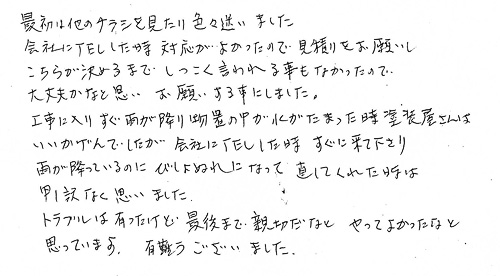 最初は他のチラシを見たり色々迷いました
会社にTELした時 対応がよかったので見積りをお願いし
こちらが決めるまで しつこく言われる事もなかったので
大丈夫かなと思い お願いする事にしました。
工事に入りすぐ雨が降り物置の中が水がたまった時塗装屋さんは
いいかげんでしたが 会社にTELした時 すぐに来て下さり
雨が降っているのに びしょぬれになって 直してくれた時は
申し訳なく思いました.
トラブルは有ったけど 最後まで親切だなと やってよかったなと
思っています. 有難うございました.